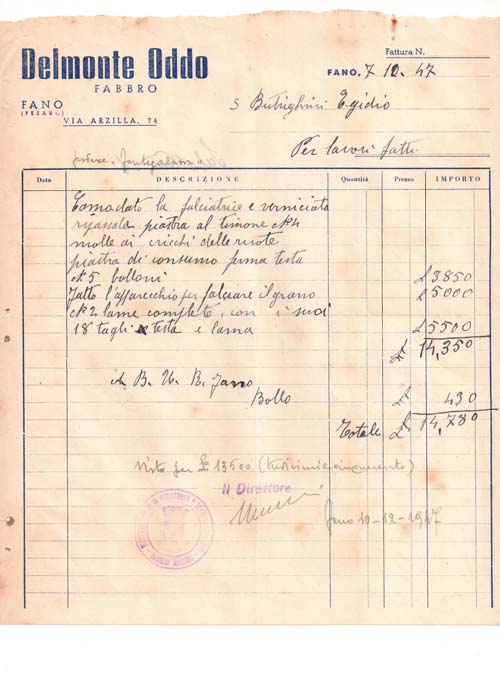 Delmonte Oddo
FABBRO
FANO
(PESARO)
VIA ARZILLA, 74
Fattura N.
FANO, 7 10. 47
S Butrighini Egidio
Per lavori fatti
Data DESCRIZIONE Quantità Prezzo IMPORTO
Comodato la falciatrice e verniciata
ripassata piastra al timone N 4
molle di cricchi delle ruote
piastra di consumo ferma testa
N 5 bolloni £ 3850
Fatto l'apparecchio per falciare il grano £ 5000
N 2 lame complete, con i suoi
18 tagli testa e lama £ 5500
£ 14,350
B. U. B.
Bollo £ 430
Totale £ 14,780
Visto per £ 13500 (tredicimilacinquecento)
Il Direttore
Fano 10-12-1947